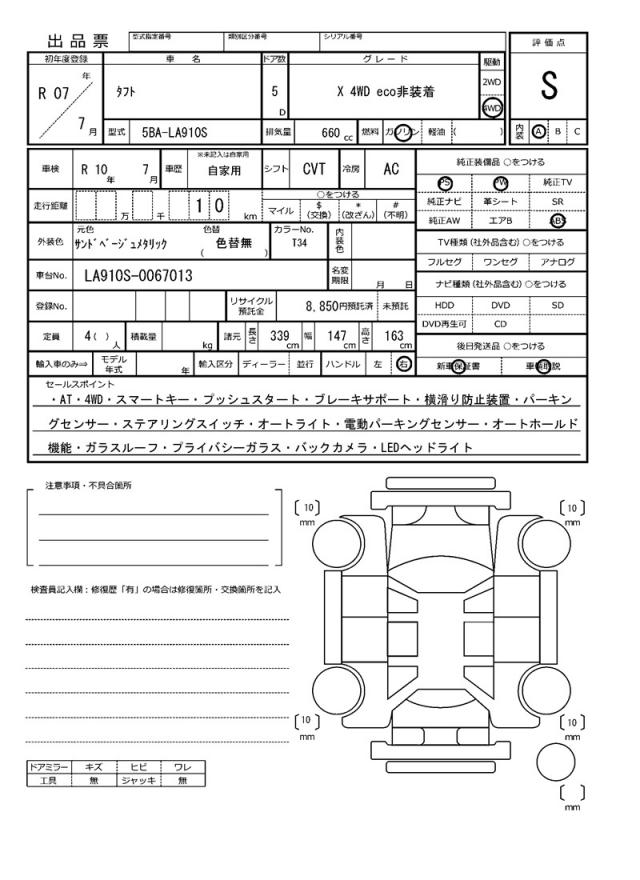 出品票
型式指定番号 類別区分番号 シリアル番号
評価点
S
初年度登録 車名 ドア数 グレード 駆動
R 07 年 7 月
タフト 5 D X 4WD eco非装着 2WD 4WD
型式 5BA-LA910S 排気量 660 cc 燃料 ガソリン 軽油 ( ) 内装 A B C
車検 R 10 年 7 月 車歴 ※未記入は自家用 自家用 シフト CVT 冷房 AC
純正装備品 ○をつける
PS PW 純正TV
純正ナビ 革シート SR
純正AW エアB ABS
走行距離 万 千 1 0 km ○をつける
マイル $ (交換) * (改ざん) # (不明)
外装色 元色 サンドベージュメタリック 色替 色替無 ( ) カラーNo. T34 内装色
TV種類(社外品含む)○をつける
フルセグ ワンセグ アナログ
車台No. LA910S-0067013 名変期限 月 日
ナビ種類(社外品含む)○をつける
HDD DVD SD
DVD再生可 CD
登録No. リサイクル預託金 8,850円預託済 未預託
定員 4( ) 人 積載量 kg 諸元 長さ 339 cm 幅 147 cm 高さ 163 cm
後日発送品 ○をつける
新車保証書 車輌取説
輸入車のみ⇒ モデル年式 年 輸入区分 ディーラー 並行 ハンドル 左 右
セールスポイント
・AT・4WD・スマートキー・プッシュスタート・ブレーキサポート・横滑り防止装置・パーキン
グセンサー・ステアリングスイッチ・オートライト・電動パーキングセンサー・オートホールド
機能・ガラスルーフ・プライバシーガラス・バックカメラ・LEDヘッドライト
注意事項・不具合箇所
検査員記入欄:修復歴「有」の場合は修復箇所・交換箇所を記入
[10] mm
[10] mm
[10] mm
[10] mm
[ ] mm
ドアミラー キズ ヒビ ワレ
工具 無 ジャッキ 無